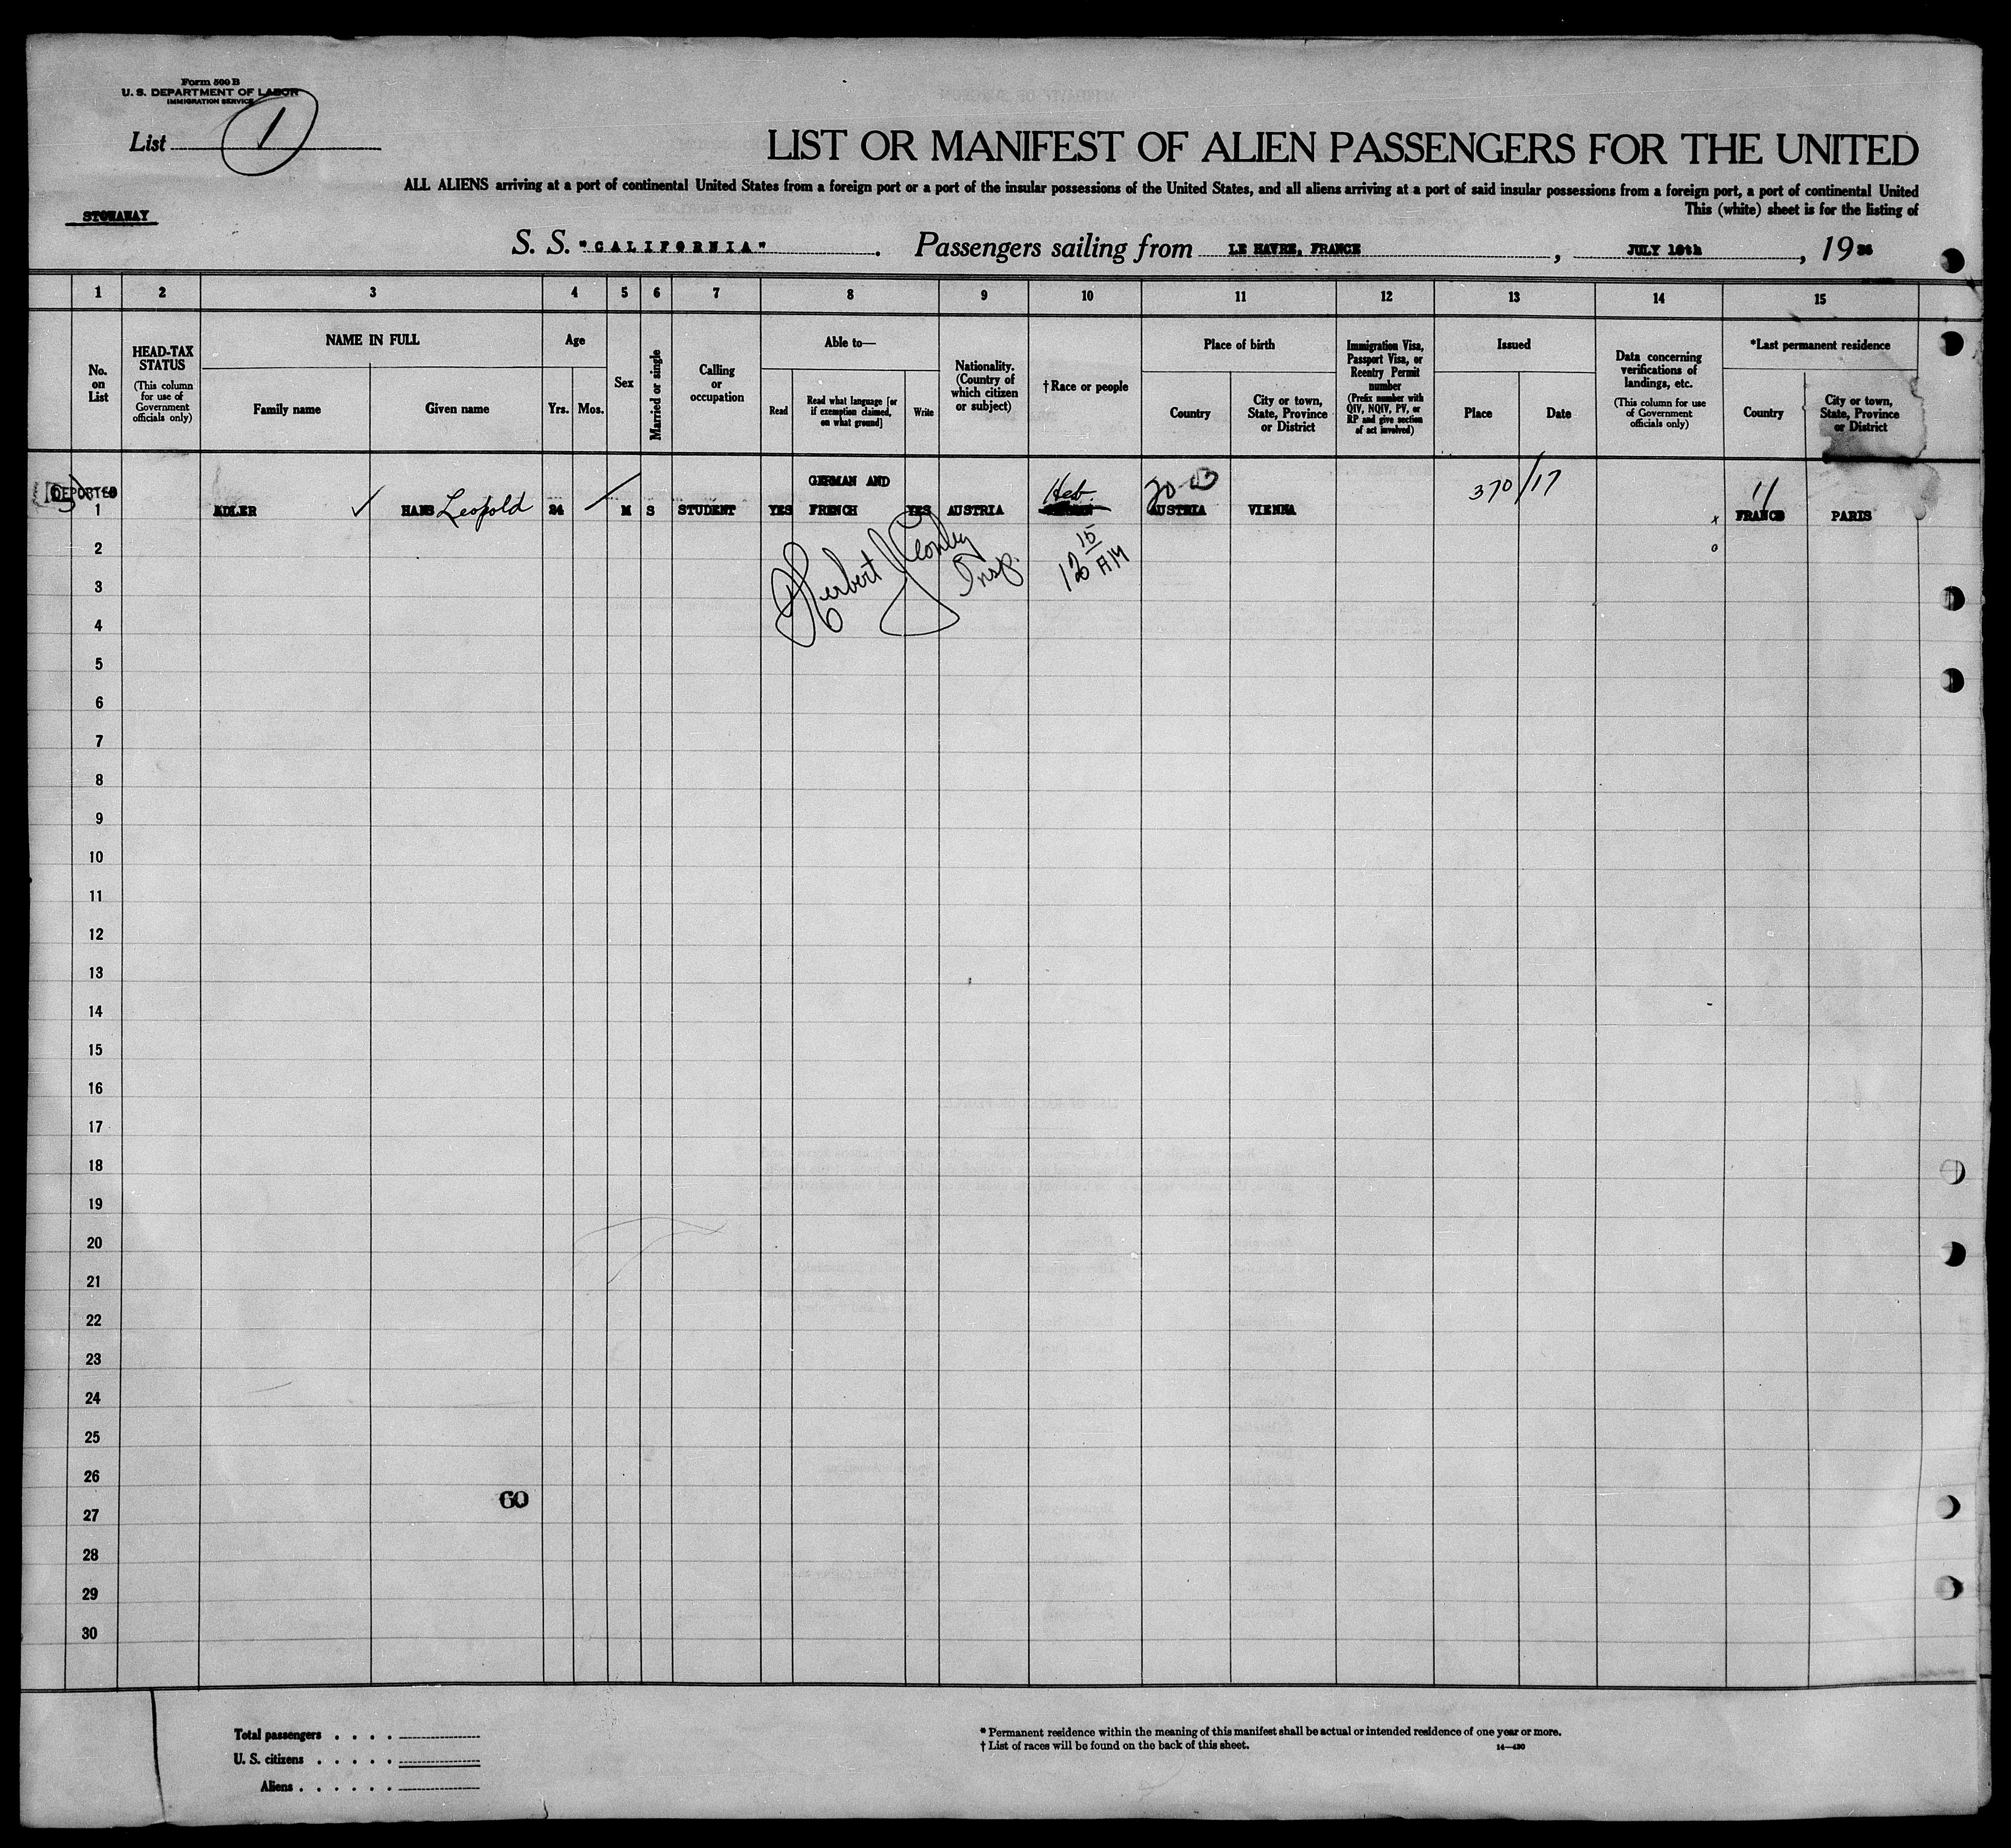 Form 500 B
U. S. DEPARTMENT OF LABOR
IMMIGRATION SERVICE
List 1
LIST OR MANIFEST OF ALIEN PASSENGERS FOR THE UNITED
ALL ALIENS arriving at a port of continental United States from a foreign port or a port of the insular possessions of the United States, and all aliens arriving at a port of said insular possessions from a foreign port, a port of continental United
STOWAWAY
This (white) sheet is for the listing of
S. S. "CALIFORNIA". Passengers sailing from LE HAVRE, FRANCE, JULY 18th, 1936
1 2 3 4 5 6 7 8 9 10 11 12 13 14 15
No. on List
HEAD-TAX STATUS
(This column for use of Government officials only)
NAME IN FULL
Family name
Given name
Age
Yrs.
Mos.
Sex
Married or single
Calling or occupation
Able to—
Read
Read what language [or if exemption claimed, on what ground]
Write
Nationality. (Country of which citizen or subject)
† Race or people
Place of birth
Country
City or town, State, Province or District
Immigration Visa, Passport Visa, or Reentry Permit number
(Prefix number with QIV, NQIV, PV, or RP and give section of act involved)
Issued
Place
Date
Data concerning verifications of landings, etc.
(This column for use of Government officials only)
*Last permanent residence
Country
City or town, State, Province or District
DEPORTED GERMAN AND Heb. 370/17 11
1 ADLER ✓ HANS Leopold 24 M S STUDENT YES FRENCH YES AUSTRIA AUSTRIA VIENNA x FRANCE PARIS
2 o
Herbert Insp. 12 15 AM
3
4
5
6
7
8
9
10
11
12
13
14
15
16
17
18
19
20
21
22
23
24
25
26
60
27
28
29
30
Total passengers . . . .
U. S. citizens . . . . .
Aliens . . . . . .
* Permanent residence within the meaning of this manifest shall be actual or intended residence of one year or more.
† List of races will be found on the back of this sheet. 14—430